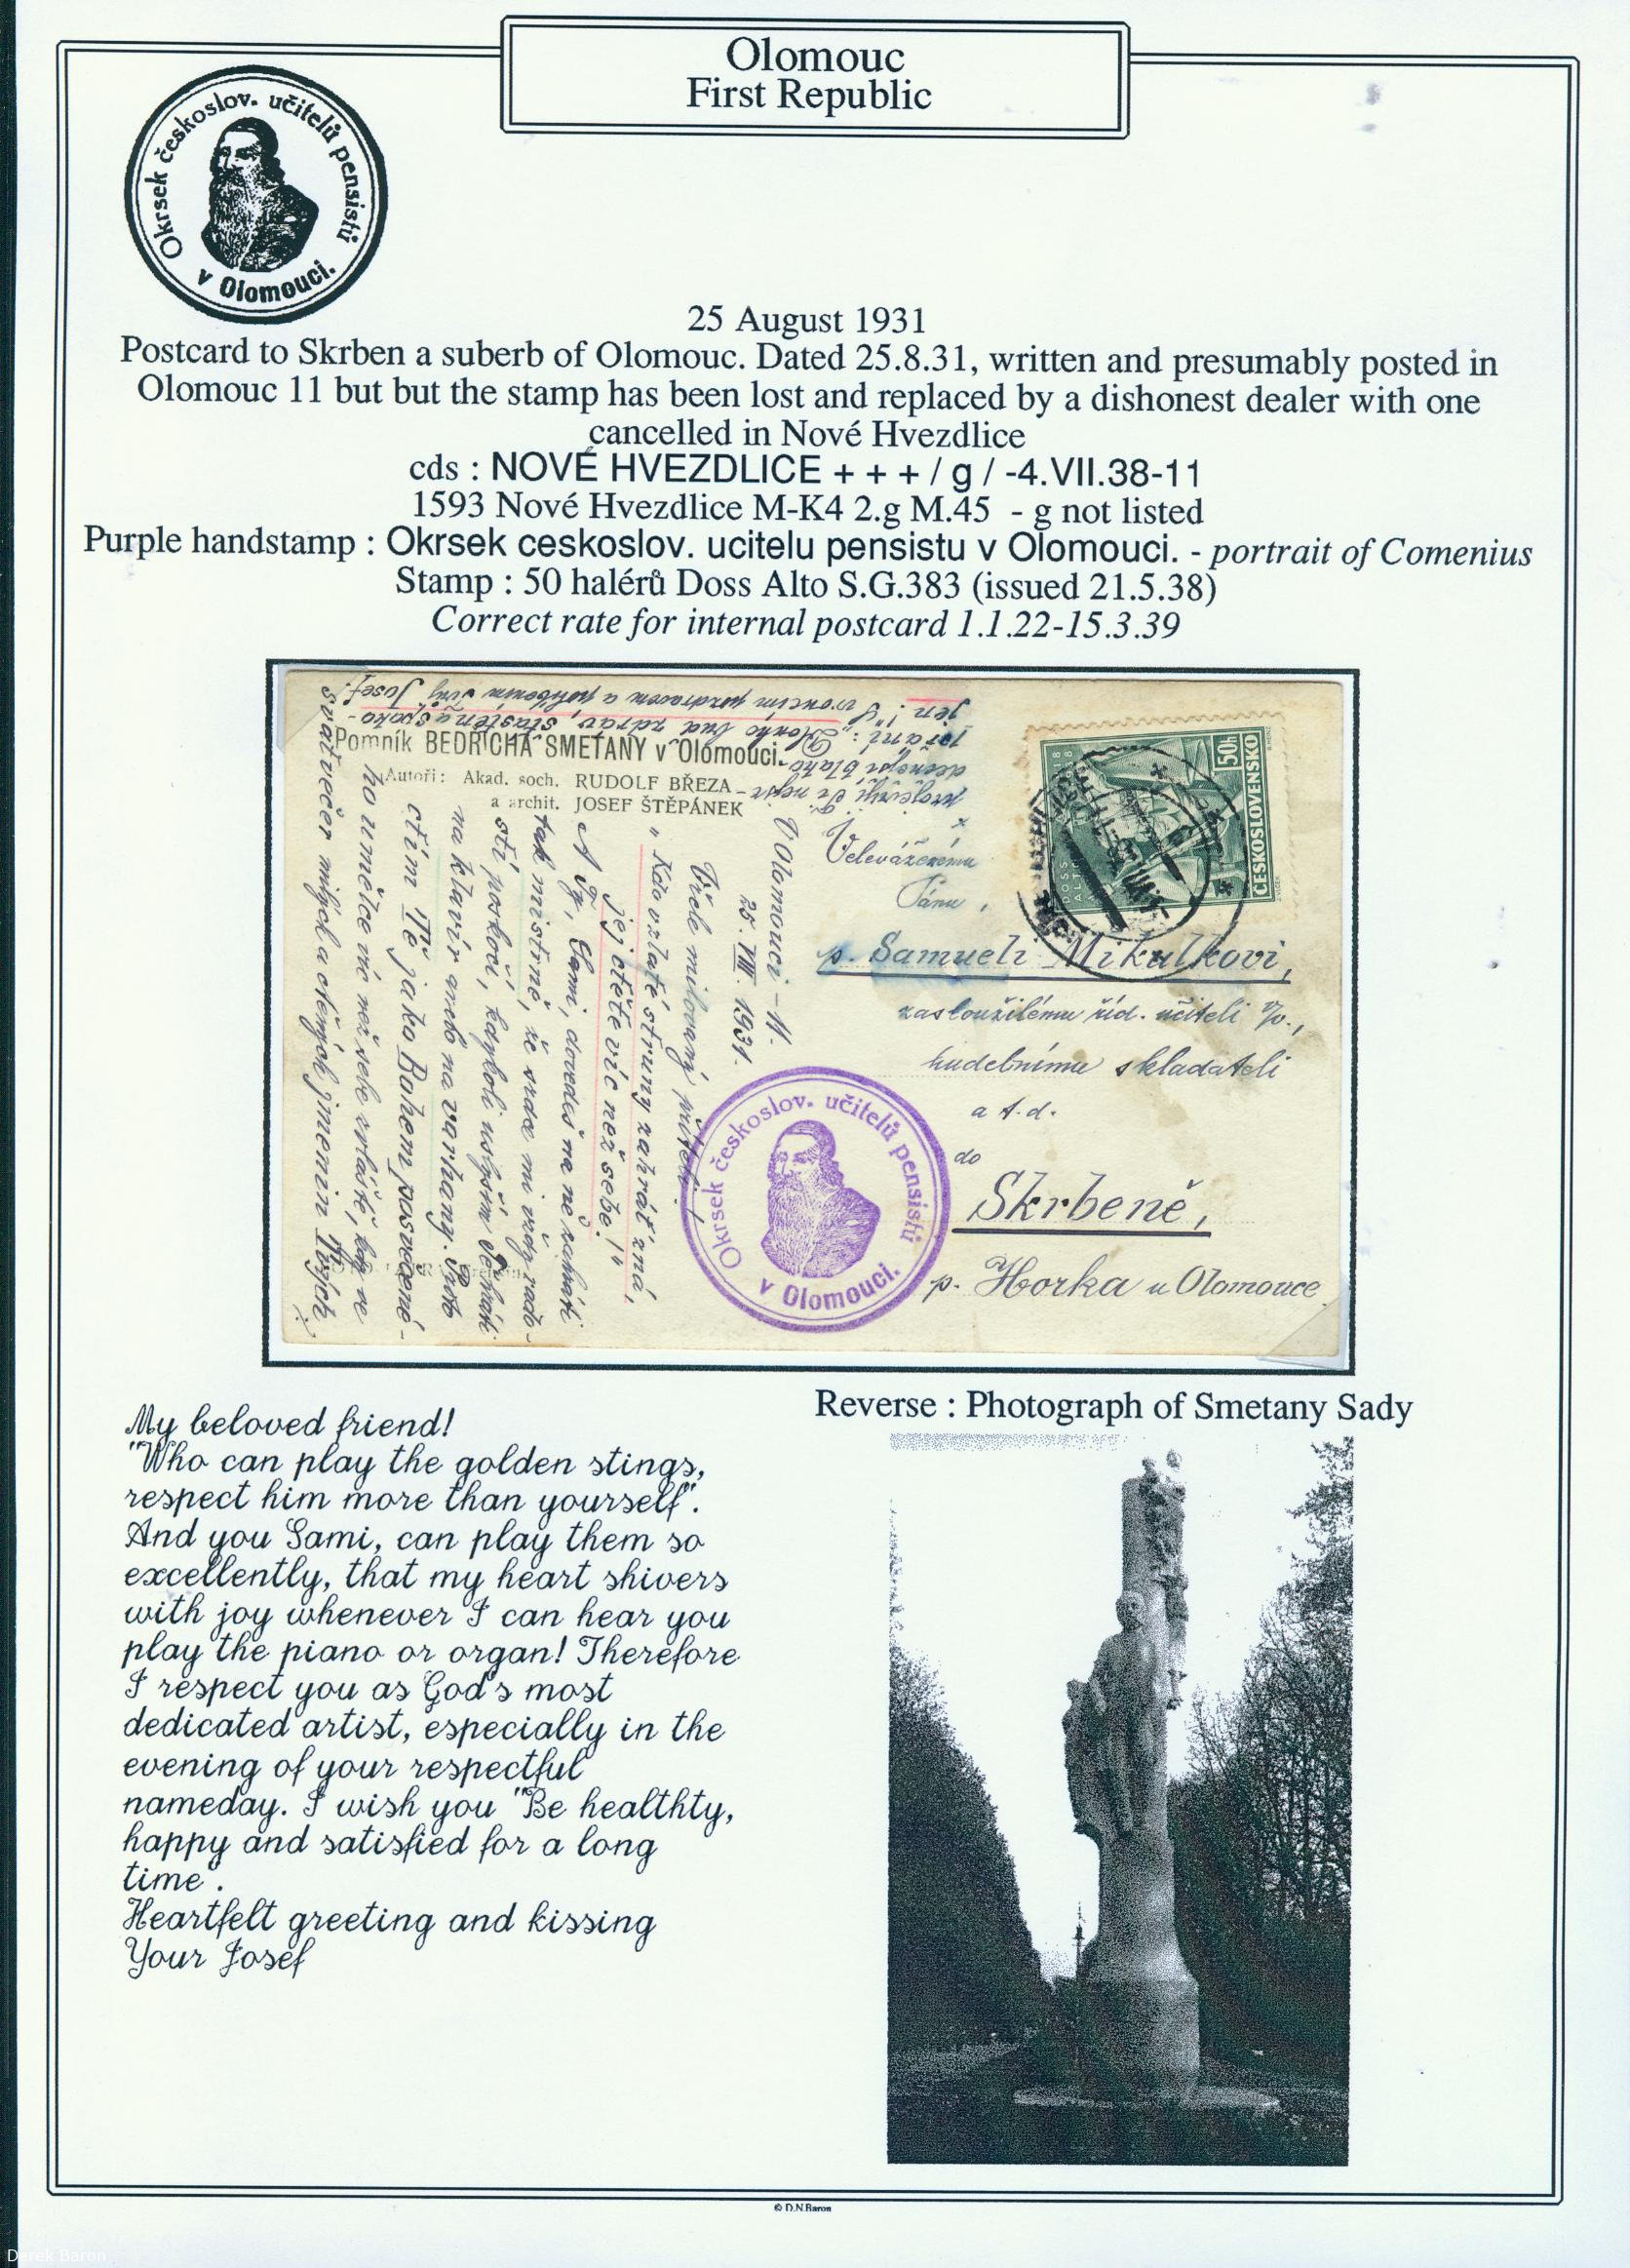 Olomouc
First Republic
Okrsek českoslov. učitelů pensistů
v Olomouci.
25 August 1931
Postcard to Skrben a suberb of Olomouc. Dated 25.8.31, written and presumably posted in
Olomouc 11 but but the stamp has been lost and replaced by a dishonest dealer with one
cancelled in Nové Hvezdlice
cds : NOVÉ HVEZDLICE + + + / g / -4.VII.38-11
1593 Nové Hvezdlice M-K4 2.g M.45 - g not listed
Purple handstamp : Okrsek ceskoslov. ucitelu pensistu v Olomouci. - portrait of Comenius
Stamp : 50 halérů Doss Alto S.G.383 (issued 21.5.38)
Correct rate for internal postcard 1.1.22-15.3.39
Pomník BEDŘICHA SMETANY v Olomouci.
Autoři: Akad. soch. RUDOLF BŘEZA
a archit. JOSEF ŠTĚPÁNEK
50h
ČESKOSLOVENSKO
DOSS
ALTO
V Olomouci - 11.
25. VIII. 1931.
Vřele milovaný příteli!
"Kdo zlaté struny zahrát zná,
jej ctěte víc než sebe!"
A Ty, Sami, dovedeš na ně zahráti
tak mistrně, že srdce mi vždy rado-
stí poskočí, kdykoli uslyším Tě hráti
na klavír anebo na varhany. Proto
ctím Tě jako Bohem posvěcené-
ho umělce více než sebe
Velováženému
Pánu,
p. Samueli Mikulkovi,
zasloužilému říd. učiteli v/v.,
hudebnímu skladateli
a t. d.
do
Skrbeně,
p. Horka u Olomouce
Okrsek českoslov. učitelů pensistů
v Olomouci.
Reverse : Photograph of Smetany Sady
My beloved friend!
"Who can play the golden stings,
respect him more than yourself".
And you Sami, can play them so
excellently, that my heart shivers
with joy whenever I can hear you
play the piano or organ! Therefore
I respect you as God's most
dedicated artist, especially in the
evening of your respectful
nameday. I wish you "Be healthty,
happy and satisfied for a long
time".
Heartfelt greeting and kissing
Your Josef
© D.N.Baron
Derek Baron